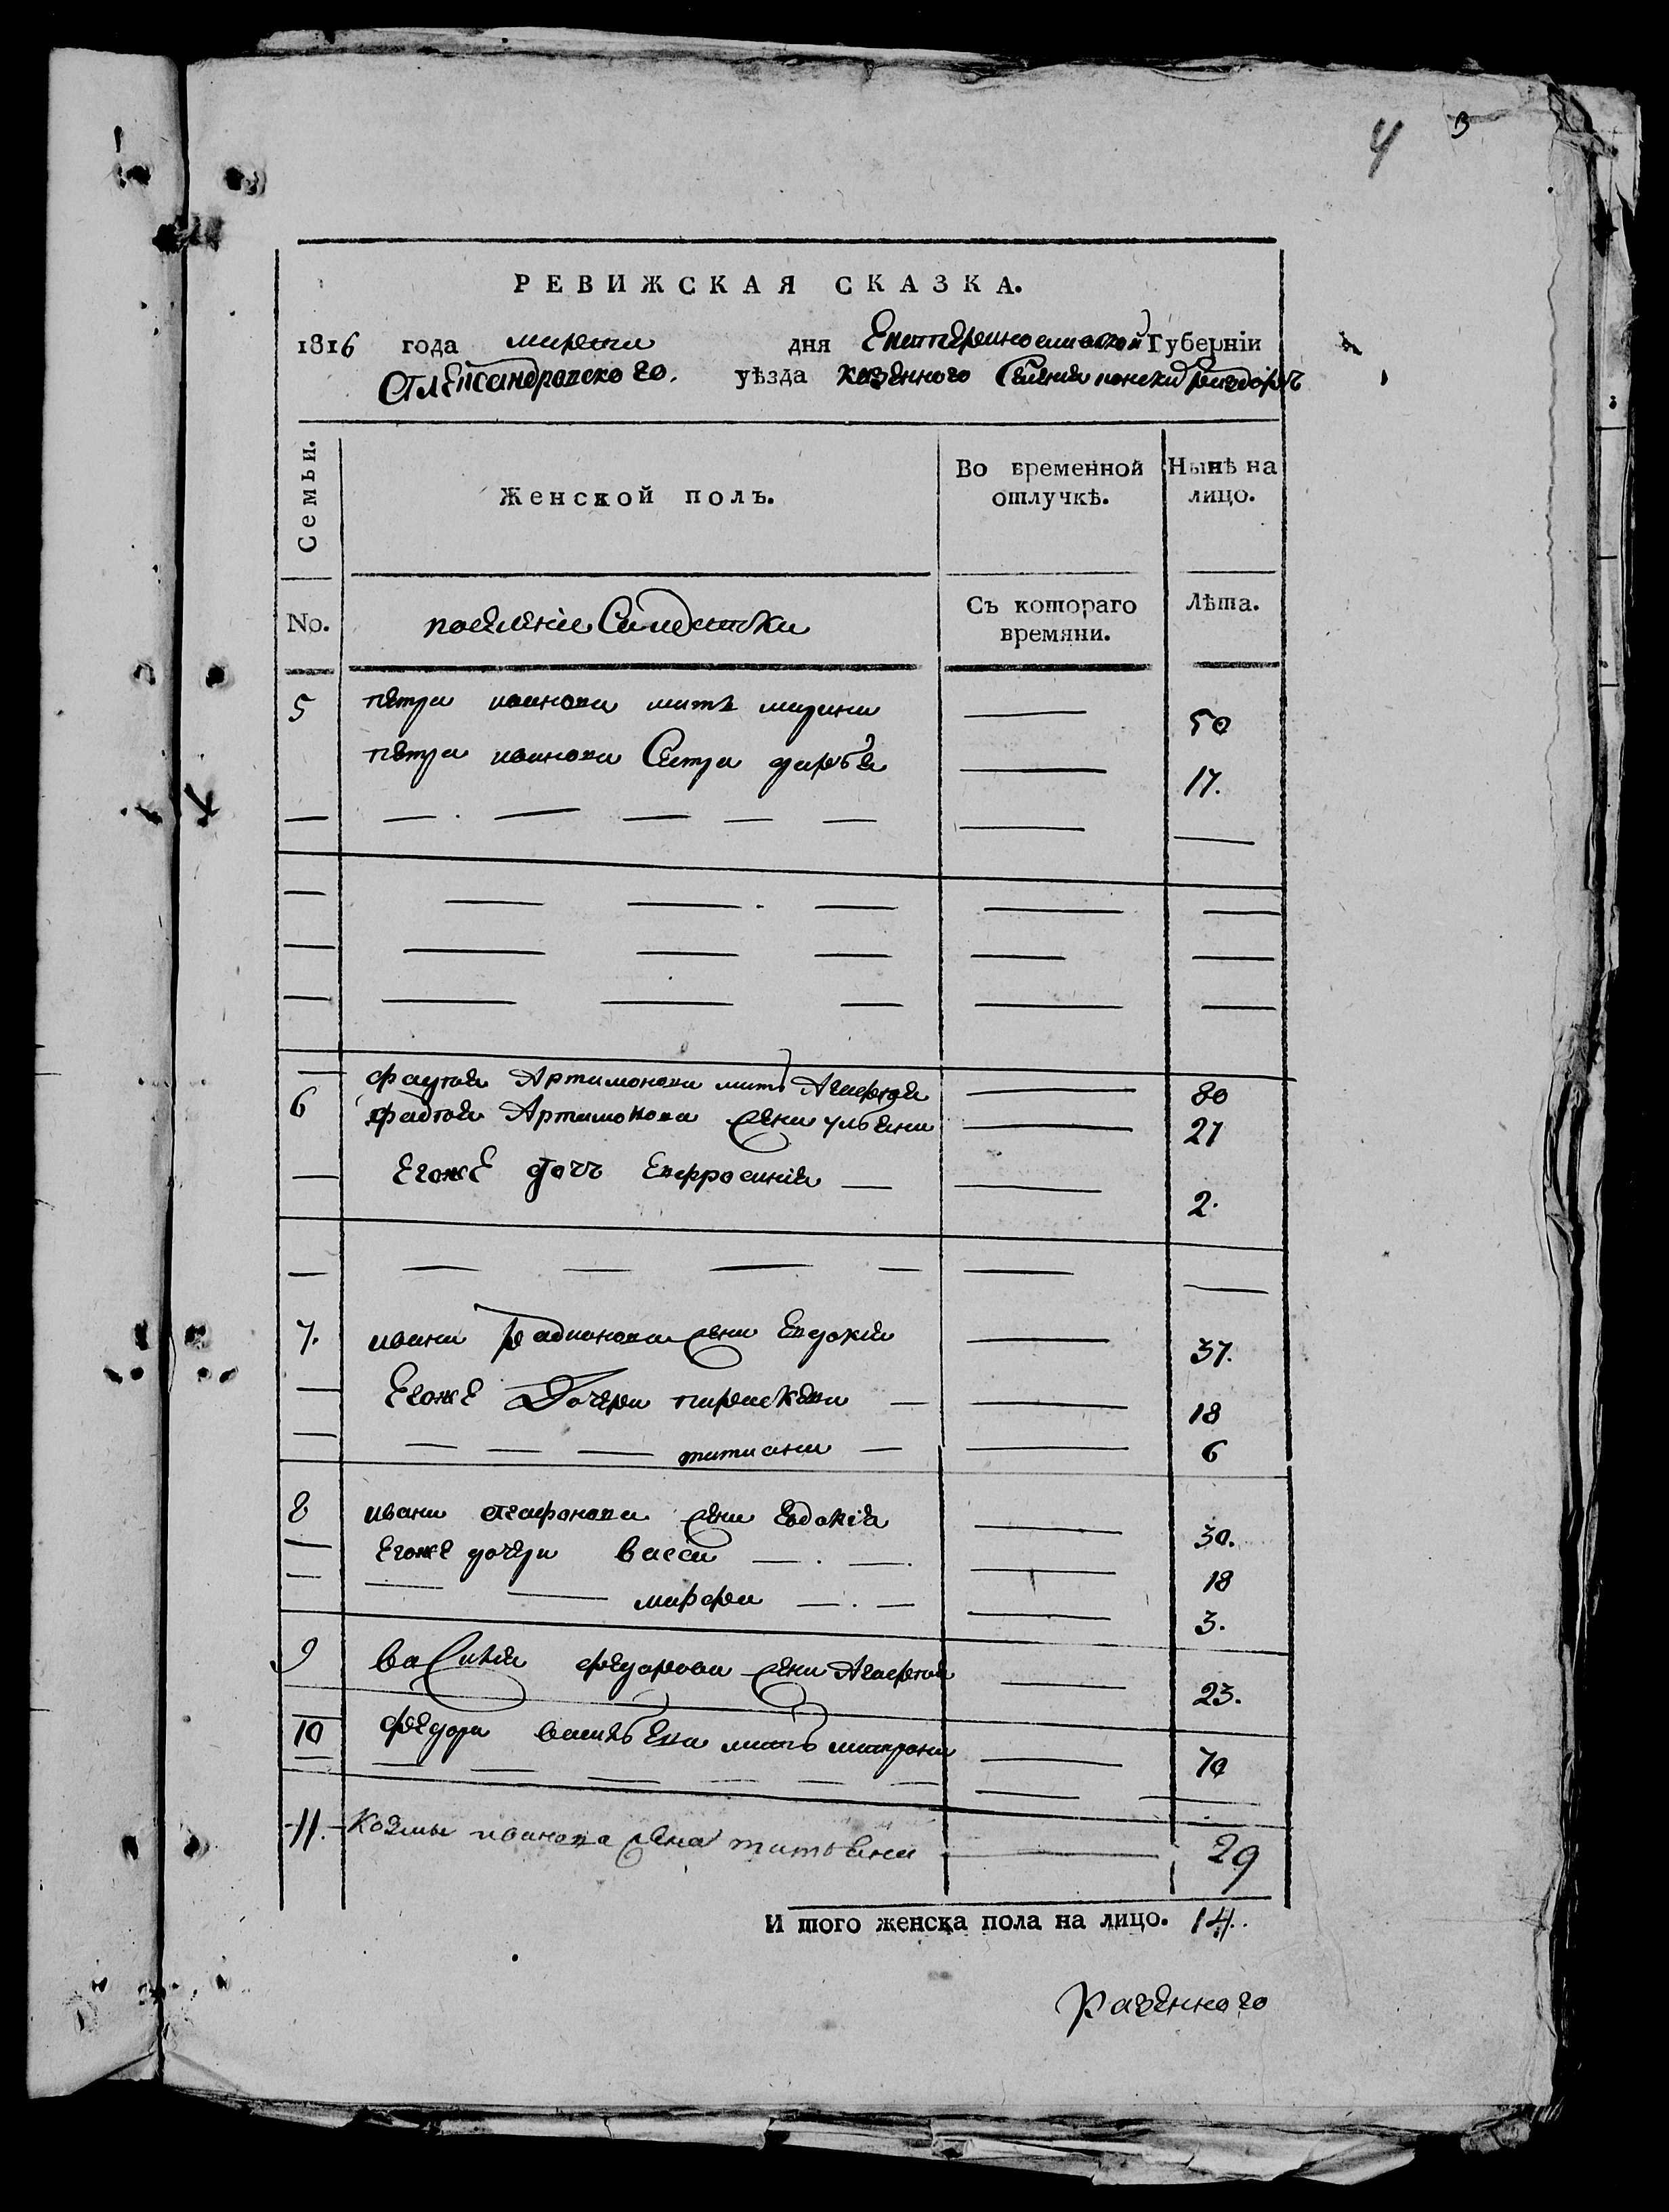 4 3
РЕВИЖСКАЯ СКАЗКА.
1816 года марта дня Екатеринославской Губерніи
Александровского. уѣзда казенного Селения
Семьи.
Женской полъ.
Во временной отлучкѣ.
Нынѣ на лицо.
No.
поселение Солдатъки
Съ котораго времяни.
Лѣта.
5 петра иванова мать марина 50
петра иванова Сестра дарья 17.
6 фадея Артамонова мать Агафия 80
фадея Артамонова жена ульяна 21
Егоже дочь Евфросиния 2.
7. ивана Радионова жена Евдокия 37.
Егоже Дочери параскева 18
татиана 6
8 ивана Агафонова жена Евдокия 30.
Егоже дочери васса 18
марфа 3.
9 василия федорова жена Агафия 23.
10 федора васильева мать матрона 70
11. Козмы иванова жена татьяна 29
И того женска пола на лицо. 14.
Казенного